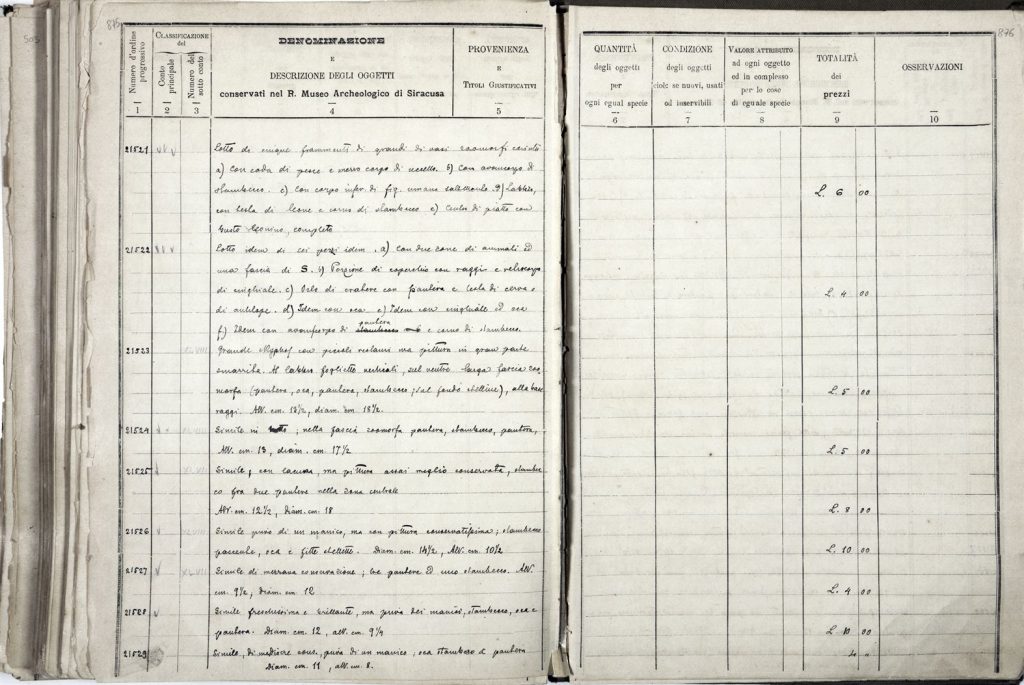 875
Numero d'ordine progressivo
CLASSIFICAZIONE del
Conto principale
Numero del sotto conto
DENOMINAZIONE
E
DESCRIZIONE DEGLI OGGETTI
conservati nel R. Museo Archeologico di Siracusa
PROVENIENZA
E
TITOLI GIUSTIFICATIVI
1 2 3 4 5
21521 Lotto di cinque frammenti di grandi di vasi zoomorfi
a) Con coda di pesce e mezzo corpo di uccello. b) Con avancorpo di
stambecco. c) Con corpo infer. di fig. umana d) Labbro,
con testa di leone e corno di stambecco e) di piatto con
busto leonino, completo
21522 Lotto idem di sei pezzi idem. a) Con due zone di animali ed
una fascia di S. b) Porzione di coperchio con raggi e retrocorpo
di cinghiale. c) Orlo di cratere con pantera e testa di cervo o
di antilope. d) Idem con oca e) Idem con cinghiale ed oca
f) Idem con avancorpo di pantera e corno di stambecco.
21523 Grande con piccoli restauri ma pittura in gran parte
smarrita. Al labbro fogliette verticali, sul ventre larga fascia zoo-
morfa (pantera, oca, pantera, stambecco; sul fondo stelline), alla base
raggi. Alt. cm. 12½, diam. cm. 18½.
21524 Simile in tutto; nella fascia zoomorfa pantera, stambecco, pantera,
Alt. cm. 13, diam. cm. 17½
21525 Simile, con lacuna, ma pittura assai meglio conservata, stambec-
co fra due pantere nella zona centrale
Alt. cm. 12½, Diam. cm. 18
21526 Simile privo di un manico, ma con pittura conservatissima; stambecco
pascente, oca e fitte stellette. Diam. cm. 14½, Alt. cm. 10½
21527 XLVIII Simile di mezzana conservazione; tre pantere ed uno stambecco. Alt.
cm. 9½, diam. cm. 12
21528 Simile freschissima e brillante, ma priva dei manici, stambecco, oca e
pantera. Diam. cm. 12, alt. cm. 9¼
21529 Simile, di mediocre cons., privo di un manico; oca stambecco e pantera
Diam. cm. 11, alt. cm. 8.
876
QUANTITÀ
degli oggetti
per
ogni egual specie
CONDIZIONE
degli oggetti
cioè: se nuovi, usati
od inservibili
VALORE ATTRIBUITO
ad ogni oggetto
od in complesso
per le cose
di eguale specie
TOTALITÀ
dei
prezzi
OSSERVAZIONI
6 7 8 9 10
L. 6 00
L. 4 00
L. 5 00
L. 5 00
L. 8 00
L. 10 00
L. 4 00
L. 10 00
4 "